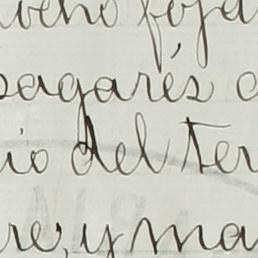 ocho foja
pagarés
io del Ter
re, y ma